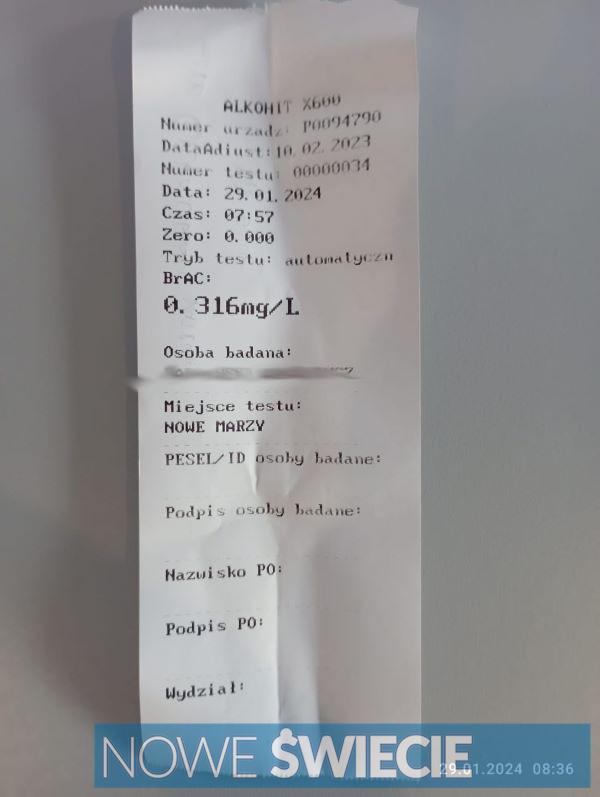 ALKOHIT X600
Numer urządz: P0094790
DataAdiust:10.02.2023
Numer testu: 00000034
Data: 29.01.2024
Czas: 07:57
Zero: 0.000
Tryb testu: automatyczn
BrAC:
0.316mg/L
Osoba badana:
Miejsce testu:
NOWE MARZY
PESEL/ID osoby badane:
Podpis osoby badane:
Nazwisko PO:
Podpis PO:
Wydział:
NOWE ŚWIECIE
29.01.2024 08:36